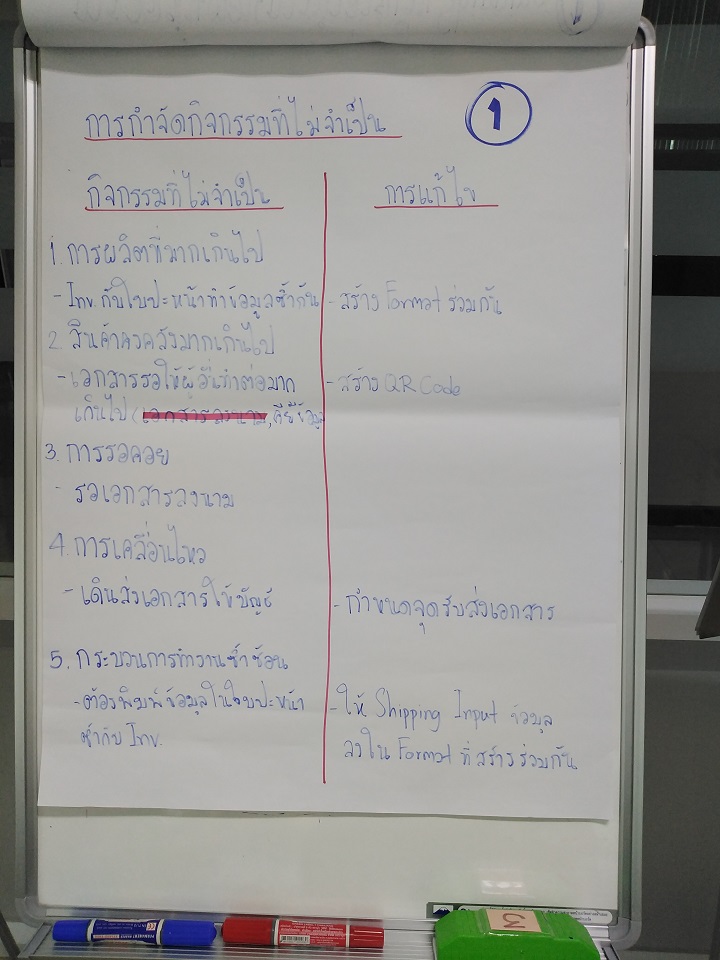 การกำจัดกิจกรรมที่ไม่จำเป็น
1
กิจกรรมที่ไม่จำเป็น
การแก้ไข
1. การผลิตที่มากเกินไป
- Inv. กับใบปะหน้าทำข้อมูลซ้ำกัน
- สร้าง Format ร่วมกัน
2. สินค้าคงคลังมากเกินไป
- เอกสารรอให้ผู้อื่นทำต่อมาก
- สร้าง QR Code
เกินไป (เอกสารลงนาม, คีย์ข้อมูล
3. การรอคอย
- รอเอกสารลงนาม
4. การเคลื่อนไหว
- เดินส่งเอกสารให้บัญชี
- กำหนดจุดรับส่งเอกสาร
5. กระบวนการทำงานซ้ำซ้อน
- ต้องพิมพ์ข้อมูลในใบปะหน้า
ซ้ำกับ Inv.
- ให้ Shipping Input ข้อมูล
ลงใน Format ที่สร้างร่วมกัน
3